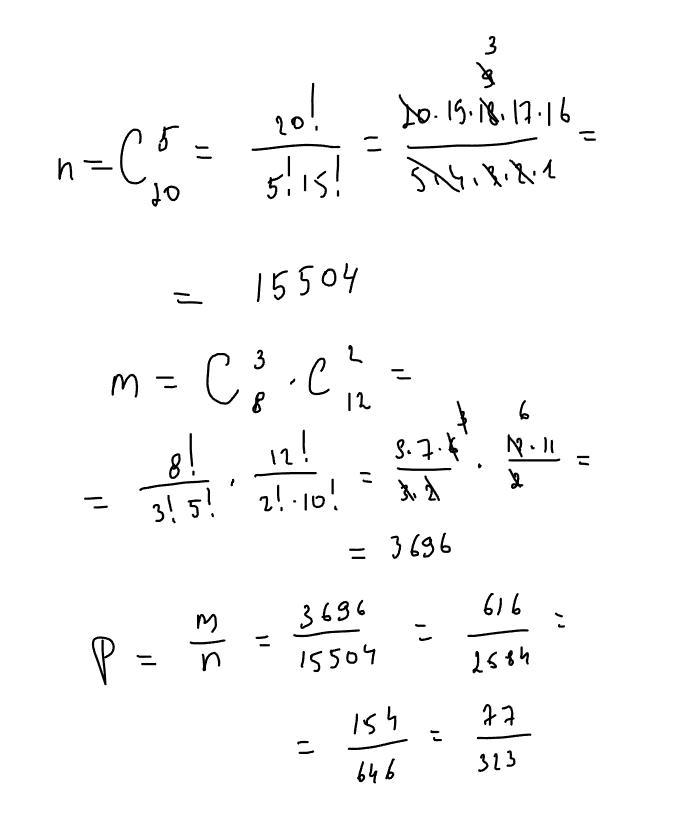 3
9
n = C_{20}^{5} = 20! / 5! 15! = 20 · 19 · 18 · 17 · 16 / 5 · 4 · 3 · 2 · 1 =
= 15504
m = C_{8}^{3} · C_{12}^{2} =
= 8! / 3! 5! · 12! / 2! · 10! = 8 · 7 · 6 / 3 · 2 · 6 12 · 11 / 2 =
= 3696
P = m / n = 3696 / 15504 = 616 / 2584 =
= 154 / 646 = 77 / 323